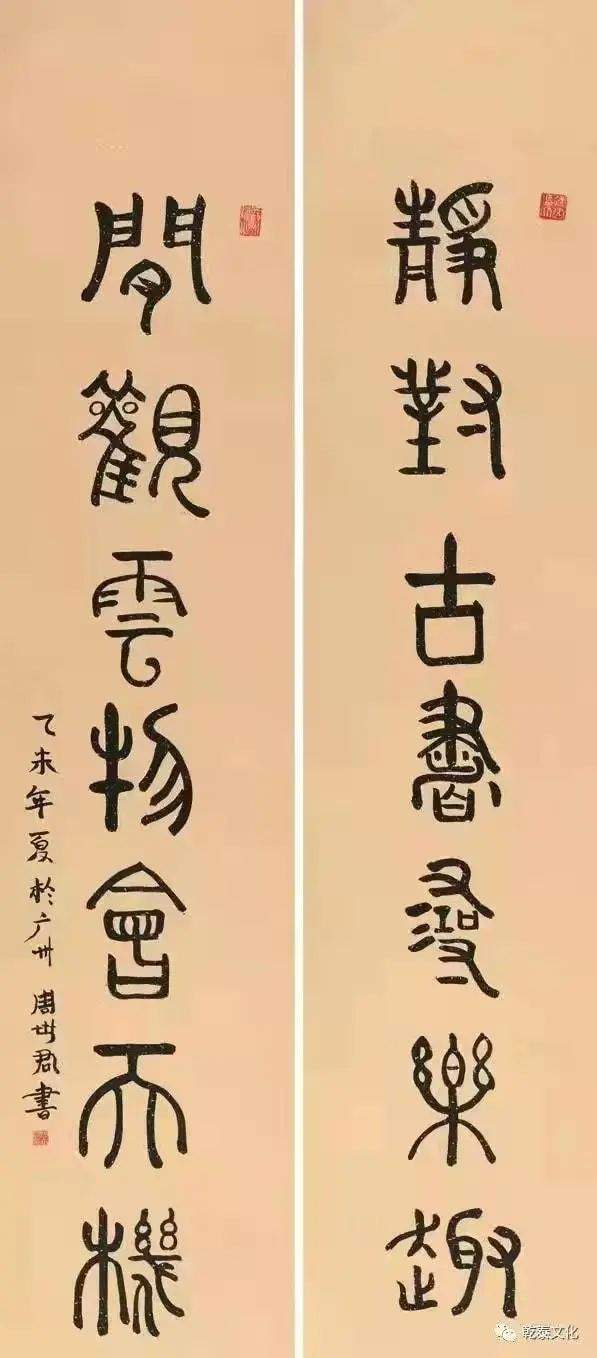 靜對古書尋樂趣
閒觀雲物會天機
乙未年夏於广州 周君書
乾泰文化